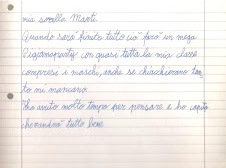 mia sorella Marti.
Quando sarà finito tutto ciò farò un mega
Pigiamaparty con quasi tutta la mia classe
compresi i maschi, anche se chiacchierano tan
to mi mancano.
Ho avuto molto tempo per pensare e ho capito
che andrà tutto bene